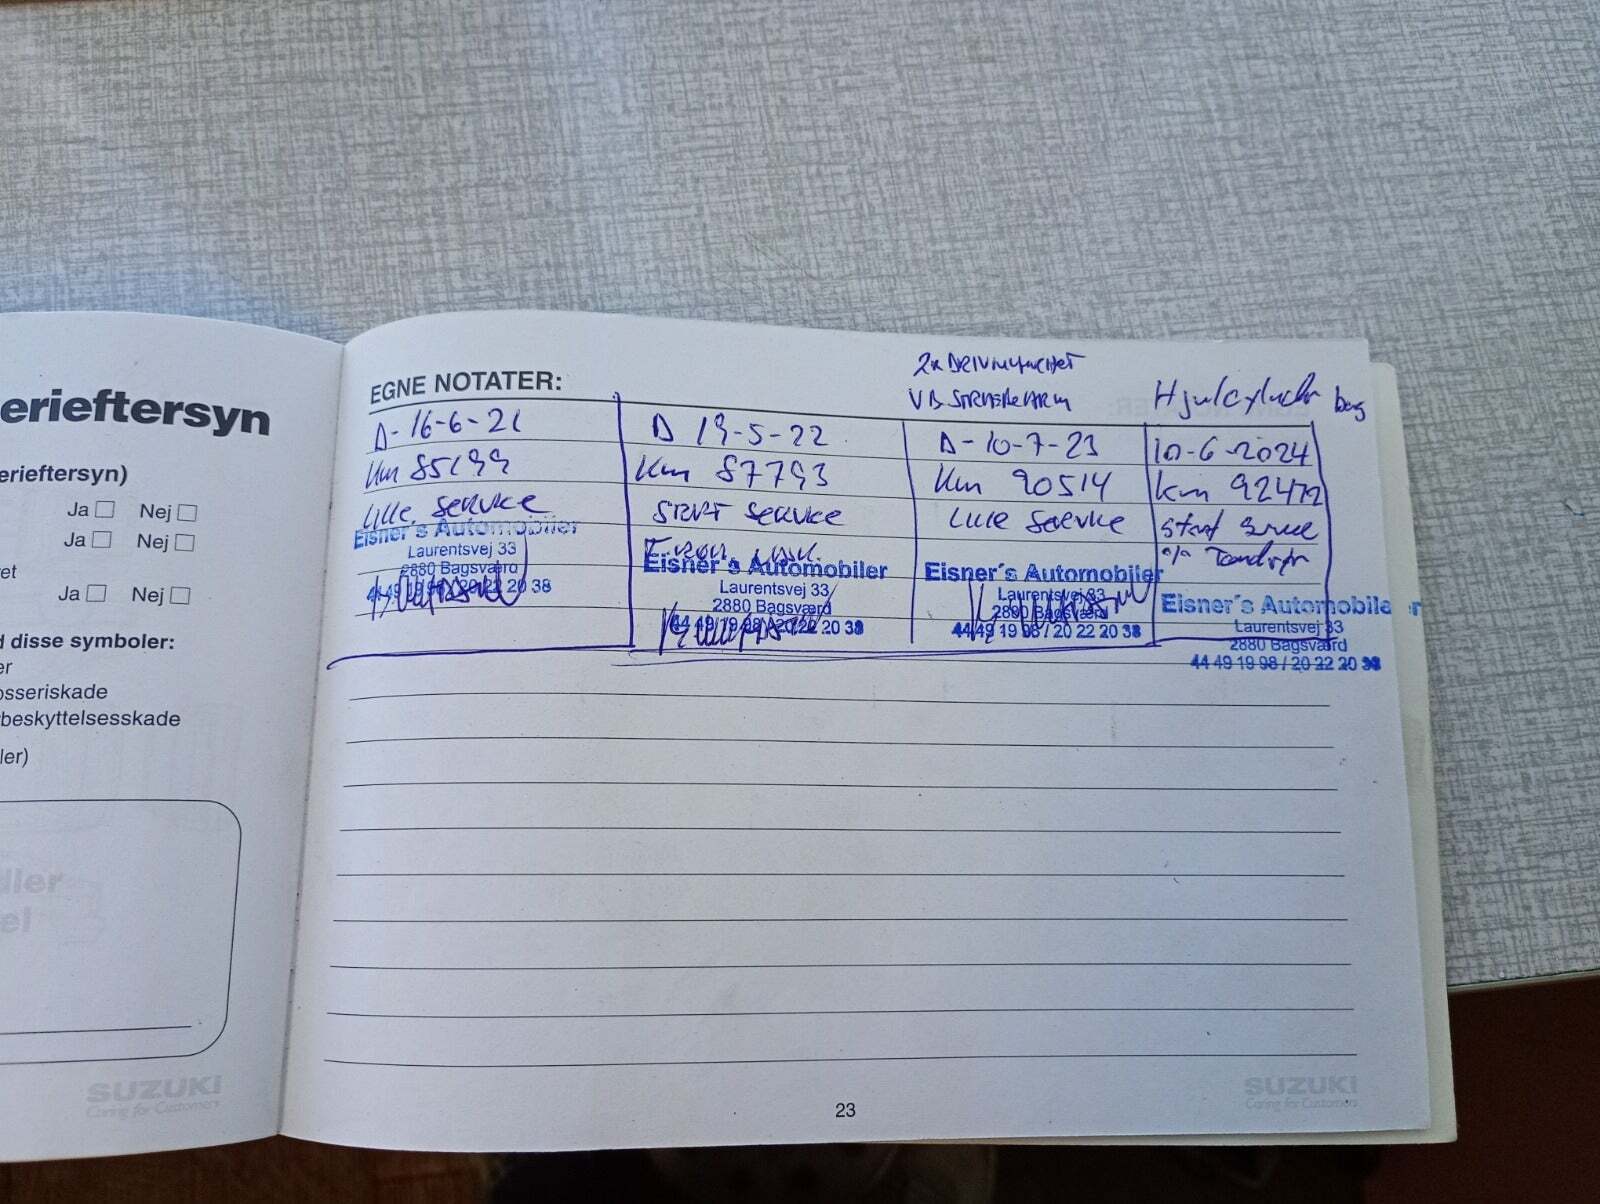 erieftersyn
erieftersyn)
Ja Nej
Ja Nej
ret
Ja Nej
d disse symboler:
er
osseriskade
rbeskyttelsesskade
ler)
dler
el
SUZUKI
Caring for Customers
EGNE NOTATER:
D- 16-6-21
Km 85199
Lille Service
Eisner's Automobiler
Laurentsvej 33
2880 Bagsværd
44 49 19 98 / 20 22 20 38
D 19-5-22
Km 87793
START SERVICE
Eisner's Automobiler
Laurentsvej 33
2880 Bagsværd
44 49 19 98 / 20 22 20 38
VB
D-10-7-23
Km 90514
Lille Service
Eisner's Automobiler
Laurentsvej 33
2880 Bagsværd
44 49 19 98 / 20 22 20 38
Hjulcylinder bag
10-6-2024
Km 92472
Eisner's Automobiler
Laurentsvej 33
2880 Bagsværd
44 49 19 98 / 20 22 20 38
SUZUKI
Caring for Customers
23